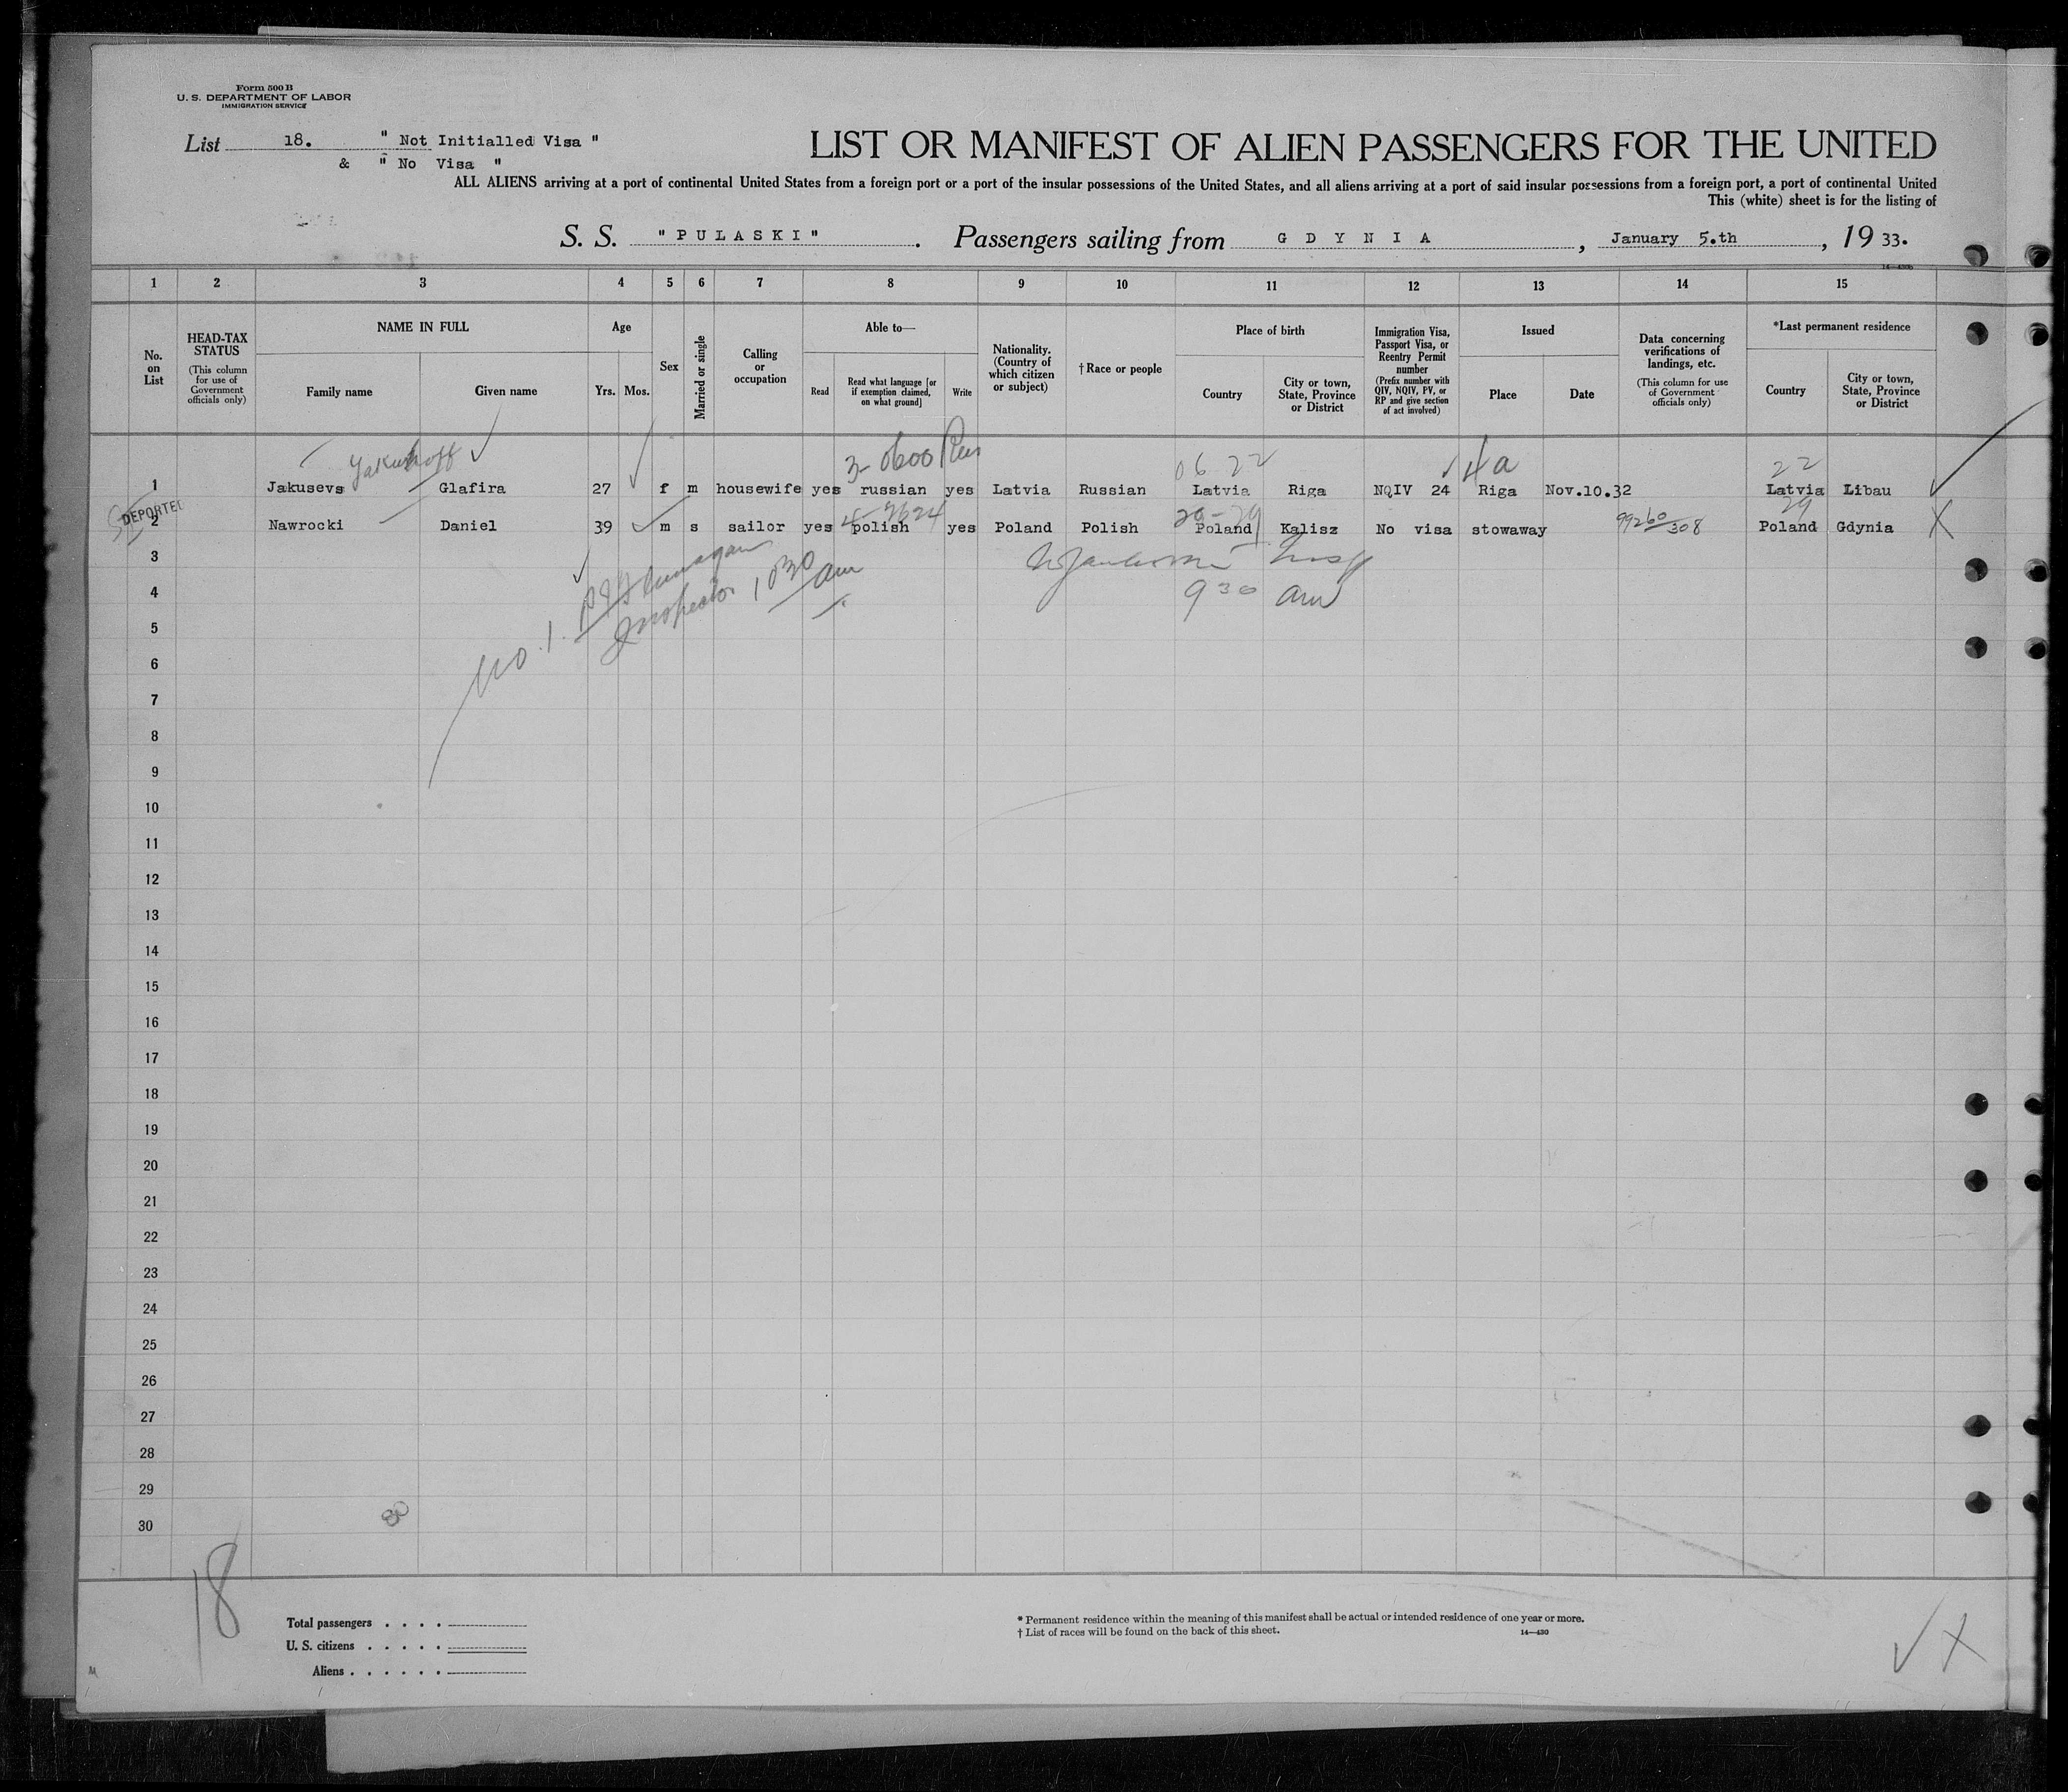 Form 500 B
U. S. DEPARTMENT OF LABOR
IMMIGRATION SERVICE
List 18. " Not Initialled Visa "
& " No Visa "
LIST OR MANIFEST OF ALIEN PASSENGERS FOR THE UNITED
ALL ALIENS arriving at a port of continental United States from a foreign port or a port of the insular possessions of the United States, and all aliens arriving at a port of said insular possessions from a foreign port, a port of continental United
This (white) sheet is for the listing of
S. S. "PULASKI". Passengers sailing from GDYNIA, January 5.th, 19 33.
1 2 3 4 5 6 7 8 9 10 11 12 13 14 15
No. on List
HEAD-TAX STATUS (This column for use of Government officials only)
NAME IN FULL
Family name Given name
Age
Yrs. Mos.
Sex
Married or single
Calling or occupation
Able to—
Read Read what language [or if exemption claimed, on what ground] Write
Nationality. (Country of which citizen or subject)
†Race or people
Place of birth
Country City or town, State, Province or District
Immigration Visa, Passport Visa, or Reentry Permit number (Prefix number with QIV, NQIV, PV, or RP and give section of act involved)
Issued
Place Date
Data concerning verifications of landings, etc. (This column for use of Government officials only)
*Last permanent residence
Country City or town, State, Province or District
3-0600 Rus 06 22 4a 22
1 Jakusevs Glafira 27 f m housewife yes russian yes Latvia Russian Latvia Riga NQIV 24 Riga Nov.10.32 Latvia Libau
DEPORTED
2 Nawrocki Daniel 39 m s sailor yes polish yes Poland Polish Poland Kalisz No visa stowaway 99260/308 Poland Gdynia
3
4 9 30 am
Inspector 10 30 am
5
No. 1.
6
7
8
9
10
11
12
13
14
15
16
17
18
19
20
21
22
23
24
25
26
27
28
29
30
18
Total passengers
U. S. citizens
Aliens
* Permanent residence within the meaning of this manifest shall be actual or intended residence of one year or more.
† List of races will be found on the back of this sheet.
14—430